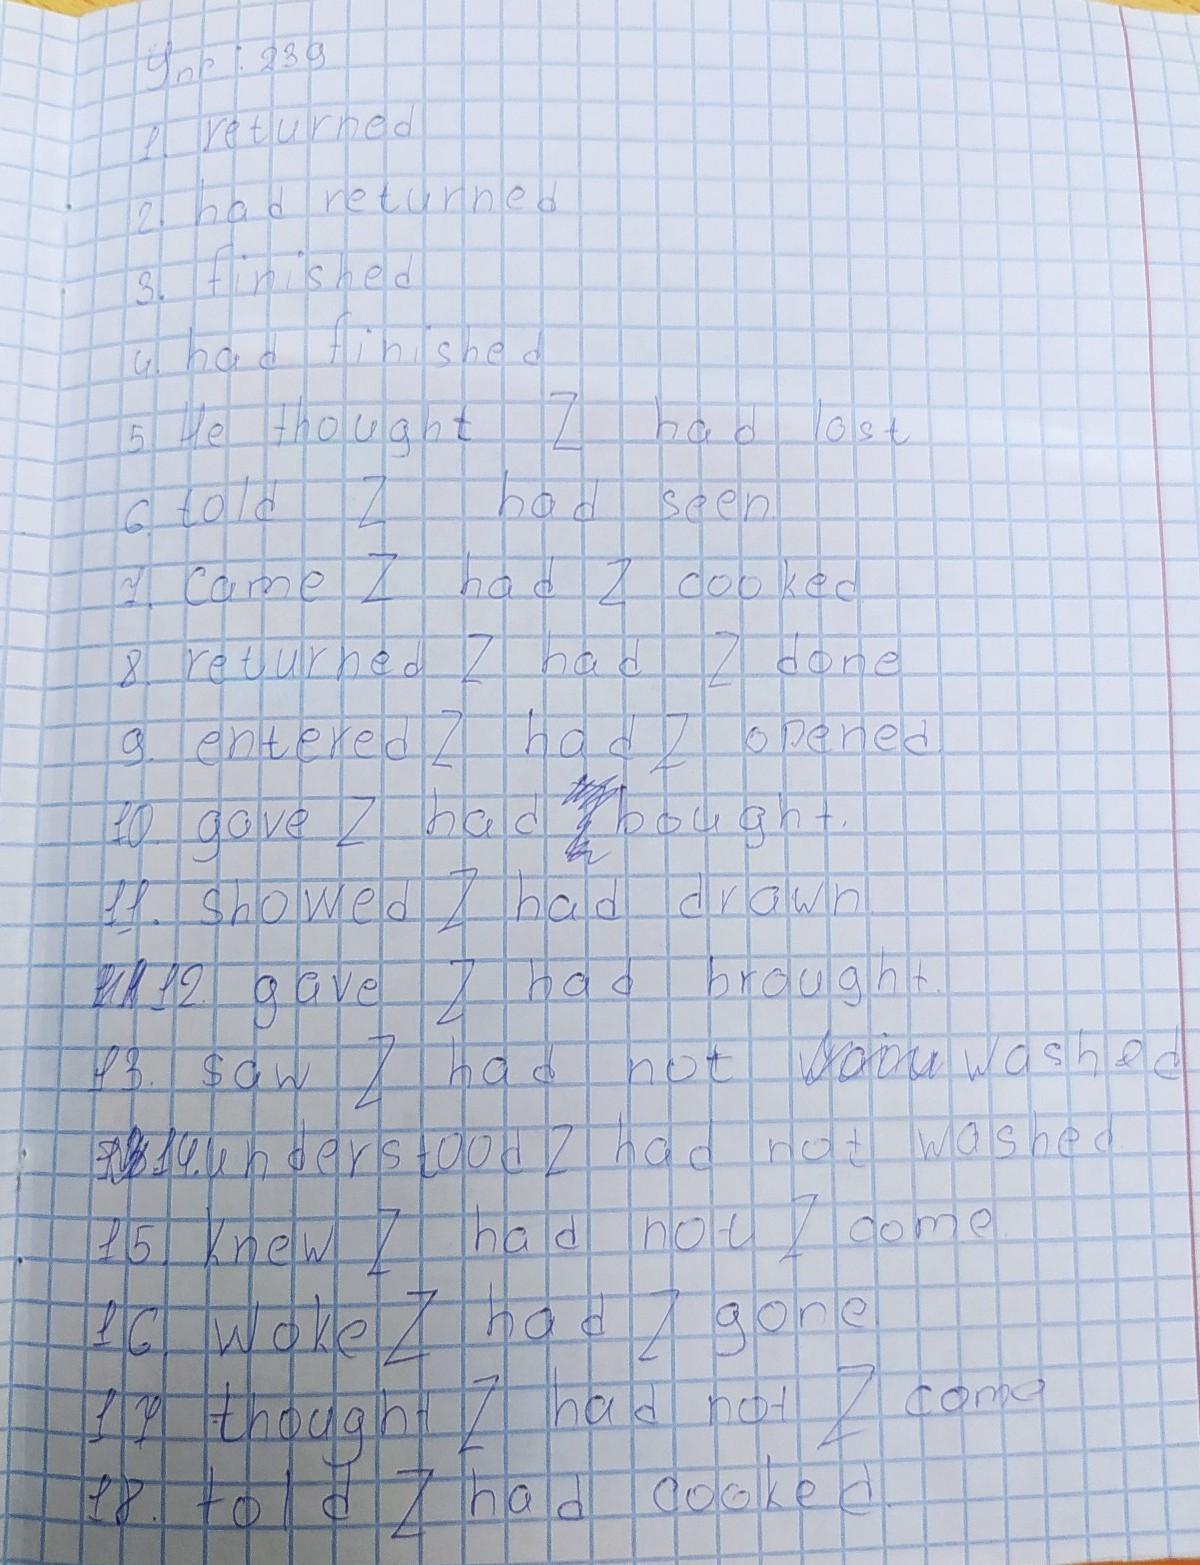 Упр. 239
1. returned
2. had returned
3. finished
4. had finished
5. He thought Z had lost
6. told Z had seen
7. came Z had Z cooked
8. returned Z had Z done
9. entered Z had Z opened
10 gave Z had bought.
11. showed Z had drawn
12. gave Z had brought.
13. saw Z had not washed
14. understood Z had not washed
15. knew Z had not Z come
16. woke Z had Z gone
17 thought Z had not Z come
18. told Z had cooked.